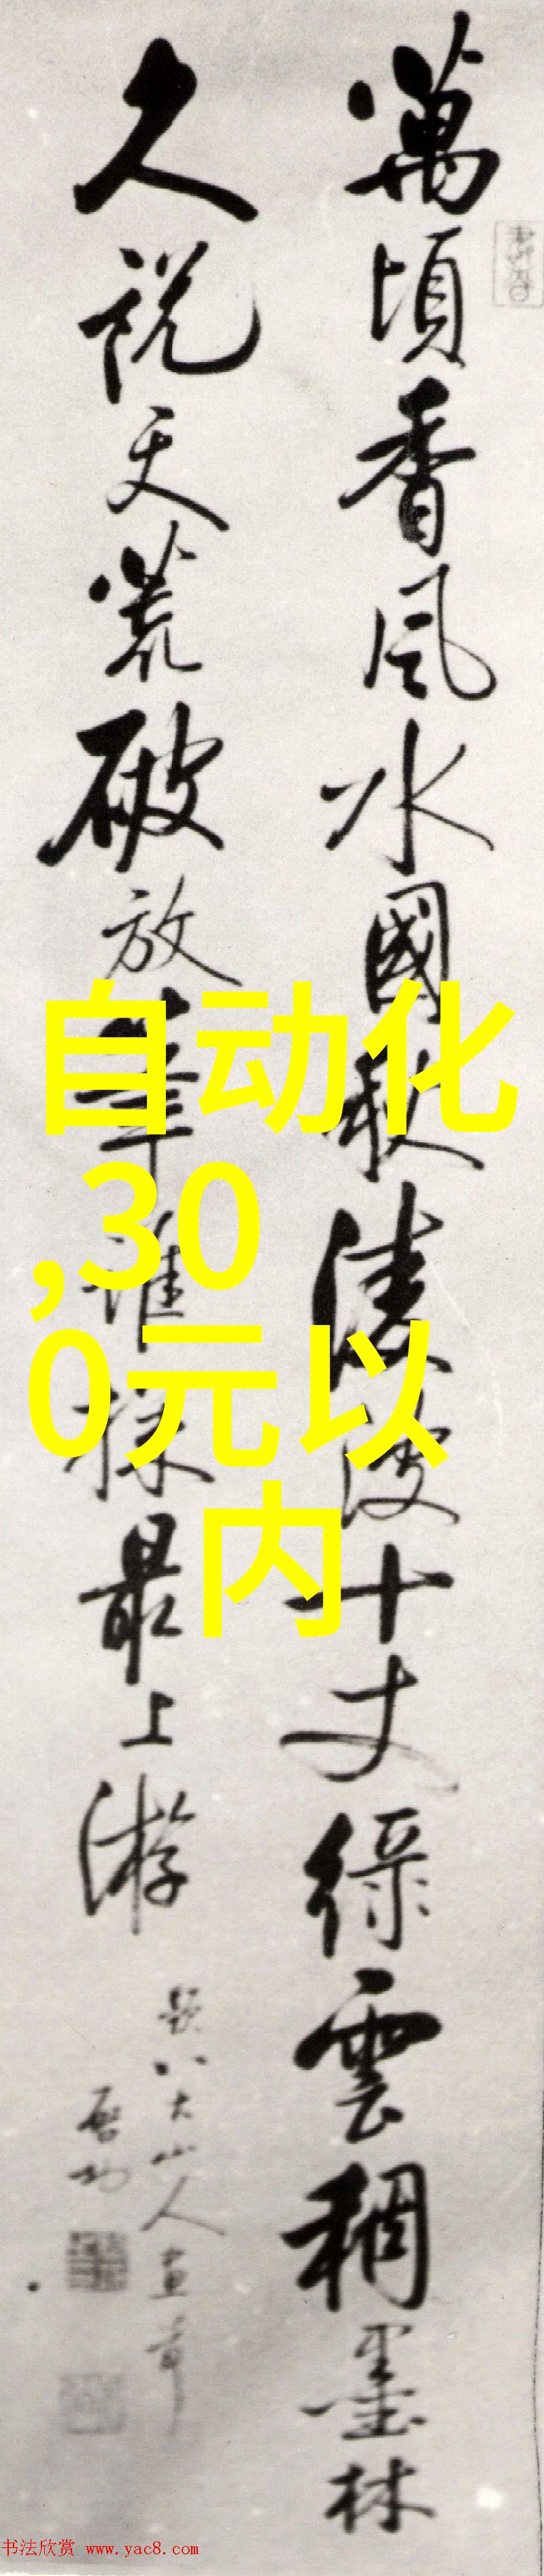 萬頃香風水國秋凌波十丈綠雲稠墨林
久說天荒破放筆誰探最上游
題八大山人畫
啓功
自动化
,30
0元以
内
书法欣赏 www.yac8.com